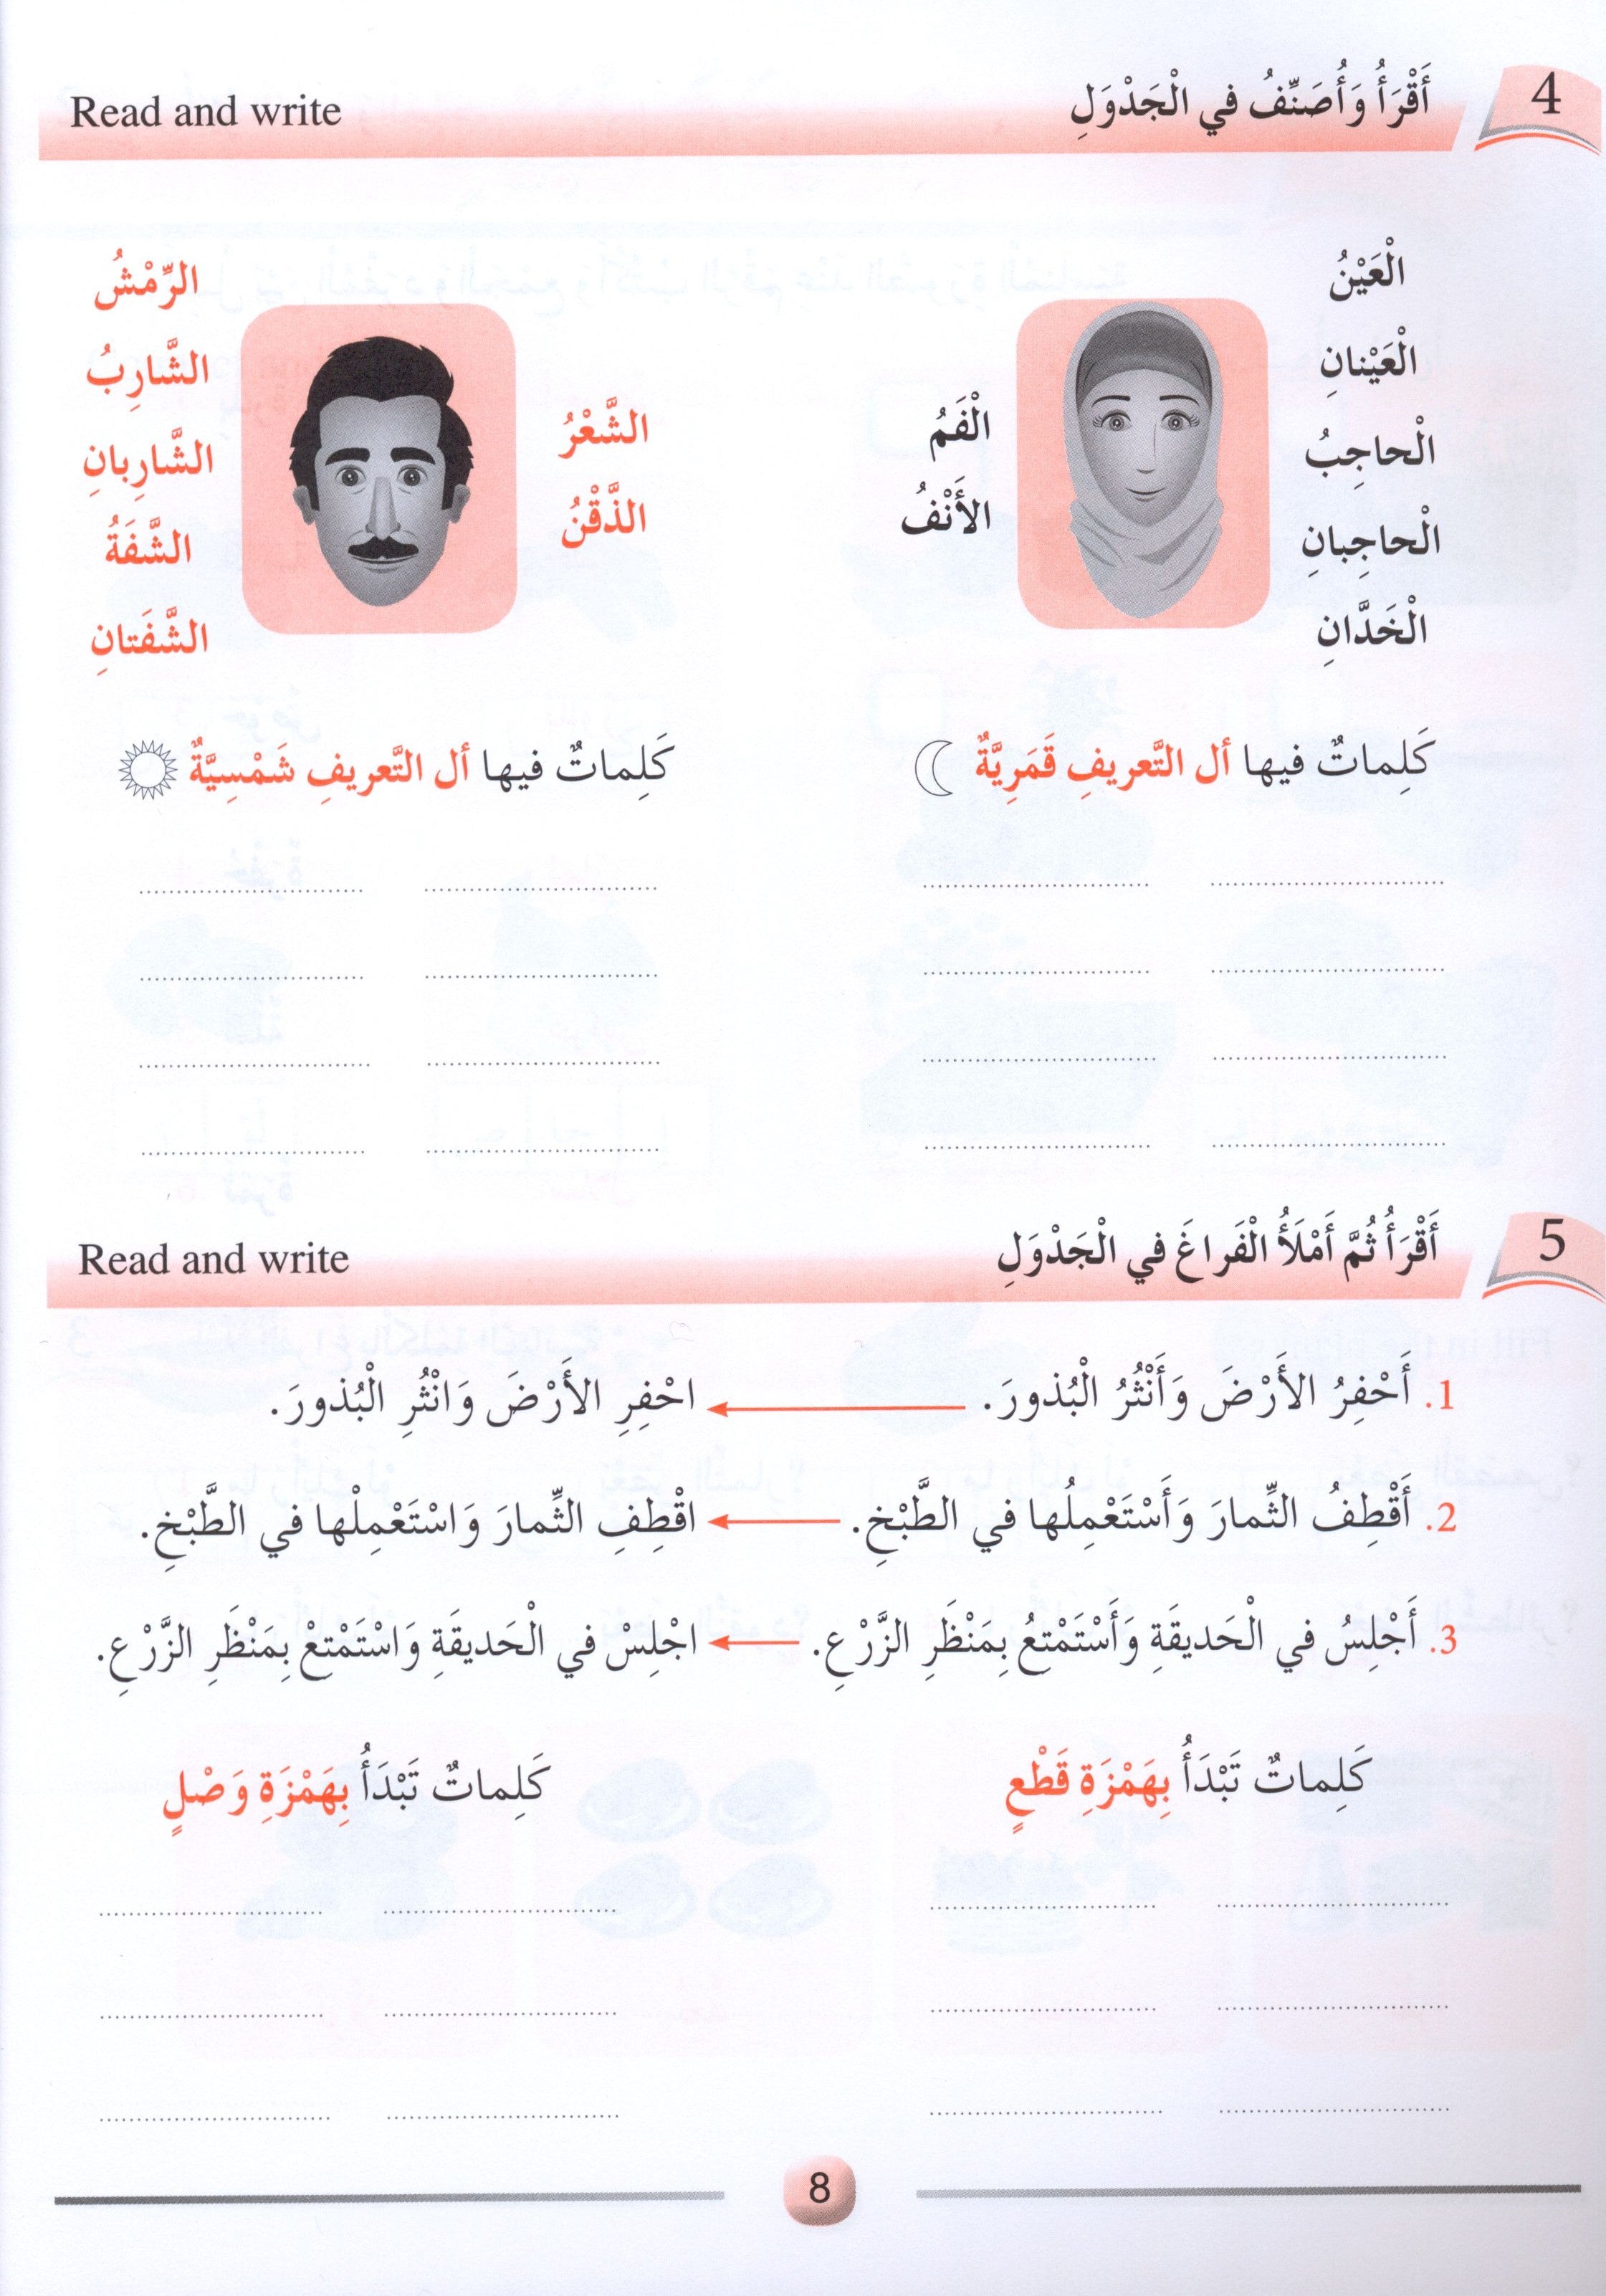 4 أَقْرَأُ وَأُصَنِّفُ في الْجَدْوَلِ Read and write
الْعَيْنُ
الْعَيْنانِ
الْحاجِبُ
الْحاجِبانِ
الْخَدَّانِ
الْفَمُ
الأَنْفُ
الشَّعْرُ
الذَّقْنُ
الرِّمْشُ
الشَّارِبُ
الشَّارِبانِ
الشَّفَةُ
الشَّفَتانِ
كَلِماتٌ فيها أل التَّعريفِ قَمَرِيَّةٌ
كَلِماتٌ فيها أل التَّعريفِ شَمْسِيَّةٌ
5 أَقْرَأُ ثُمَّ أَمْلَأُ الْفَراغَ في الْجَدْوَلِ Read and write
1. أَحْفِرُ الأَرْضَ وَأَنْثُرُ الْبُذورَ. احْفِرِ الأَرْضَ وَانْثُرِ الْبُذورَ.
2. أَقْطِفُ الثِّمارَ وَأَسْتَعْمِلُها في الطَّبْخِ. اقْطِفِ الثِّمارَ وَاسْتَعْمِلْها في الطَّبْخِ.
3. أَجْلِسُ في الْحَديقَةِ وَأَسْتَمْتِعُ بِمَنْظَرِ الزَّرْعِ. اجْلِسْ في الْحَديقَةِ وَاسْتَمْتِعْ بِمَنْظَرِ الزَّرْعِ.
كَلِماتٌ تَبْدَأُ بِهَمْزَةِ قَطْعٍ
كَلِماتٌ تَبْدَأُ بِهَمْزَةِ وَصْلٍ
8